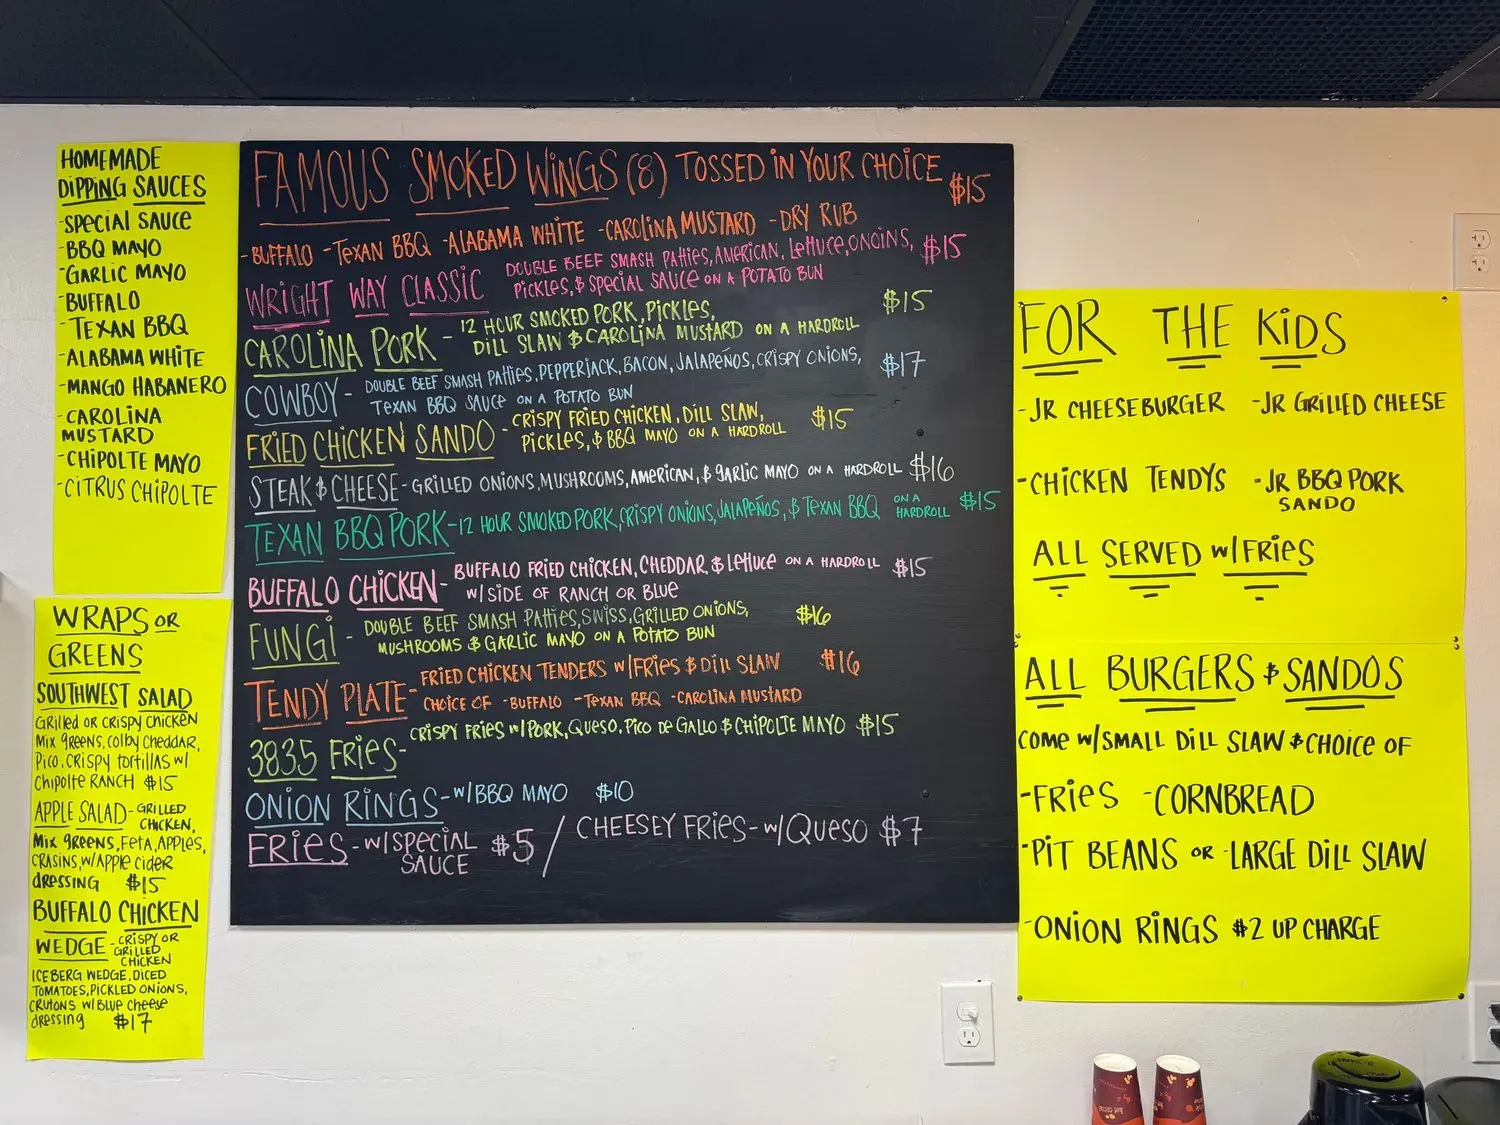 HOMEMADE
DIPPING SAUCES
-SPECIAL SAUCE
-BBQ MAYO
-GARLIC MAYO
-BUFFALO
-TEXAN BBQ
-ALABAMA WHITE
-MANGO HABANERO
-CAROLINA
MUSTARD
-CHIPOLTE MAYO
-CITRUS CHIPOLTE
WRAPS OR
GREENS
SOUTHWEST SALAD
GRILLED OR CRISPY CHICKEN
MIX GREENS, COLBY CHEDDAR,
PICO, CRISPY TORTILLAS W/
CHIPOLTE RANCH $15
APPLE SALAD-GRILLED
CHICKEN,
MIX GREENS, FETA, APPLES,
CRASINS, W/APPLE CIDER
DRESSING $15
BUFFALO CHICKEN
WEDGE-CRISPY OR
GRILLED
CHICKEN
ICEBERG WEDGE, DICED
TOMATOES, PICKLED ONIONS,
CRUTONS W/BLUE CHEESE
DRESSING $17
FAMOUS SMOKED WINGS (8) TOSSED IN YOUR CHOICE $15
-BUFFALO -TEXAN BBQ -ALABAMA WHITE -CAROLINA MUSTARD -DRY RUB
WRIGHT WAY CLASSIC DOUBLE BEEF SMASH PATTIES, AMERICAN, LETTUCE, ONOINS, $15
PICKLES, & SPECIAL SAUCE ON A POTATO BUN
CAROLINA PORK - 12 HOUR SMOKED PORK, PICKLES, $15
DILL SLAW & CAROLINA MUSTARD ON A HARDROLL
COWBOY - DOUBLE BEEF SMASH PATTIES, PEPPERJACK, BACON, JALAPEÑOS, CRISPY ONIONS, $17
TEXAN BBQ SAUCE ON A POTATO BUN
FRIED CHICKEN SANDO - CRISPY FRIED CHICKEN, DILL SLAW, $15
PICKLES, & BBQ MAYO ON A HARDROLL
STEAK & CHEESE - GRILLED ONIONS, MUSHROOMS, AMERICAN, & GARLIC MAYO ON A HARDROLL $16
TEXAN BBQ PORK - 12 HOUR SMOKED PORK, CRISPY ONIONS, JALAPEÑOS, & TEXAN BBQ ON A HARDROLL $15
BUFFALO CHICKEN - BUFFALO FRIED CHICKEN, CHEDDAR & LETTUCE ON A HARDROLL $15
W/SIDE OF RANCH OR BLUE
FUNGI - DOUBLE BEEF SMASH PATTIES, SWISS, GRILLED ONIONS, $16
MUSHROOMS & GARLIC MAYO ON A POTATO BUN
TENDY PLATE - FRIED CHICKEN TENDERS W/FRIES & DILL SLAW $16
CHOICE OF -BUFFALO -TEXAN BBQ -CAROLINA MUSTARD
3835 FRIES - CRISPY FRIES W/PORK, QUESO, PICO DE GALLO & CHIPOLTE MAYO $15
ONION RINGS - W/BBQ MAYO $10
FRIES - W/SPECIAL SAUCE $5 / CHEESEY FRIES - W/QUESO $7
FOR THE KIDS
-JR CHEESEBURGER -JR GRILLED CHEESE
-CHICKEN TENDYS -JR BBQ PORK
SANDO
ALL SERVED W/FRIES
ALL BURGERS & SANDOS
COME W/SMALL DILL SLAW & CHOICE OF
-FRIES -CORNBREAD
-PIT BEANS OR -LARGE DILL SLAW
-ONION RINGS $2 UP CHARGE